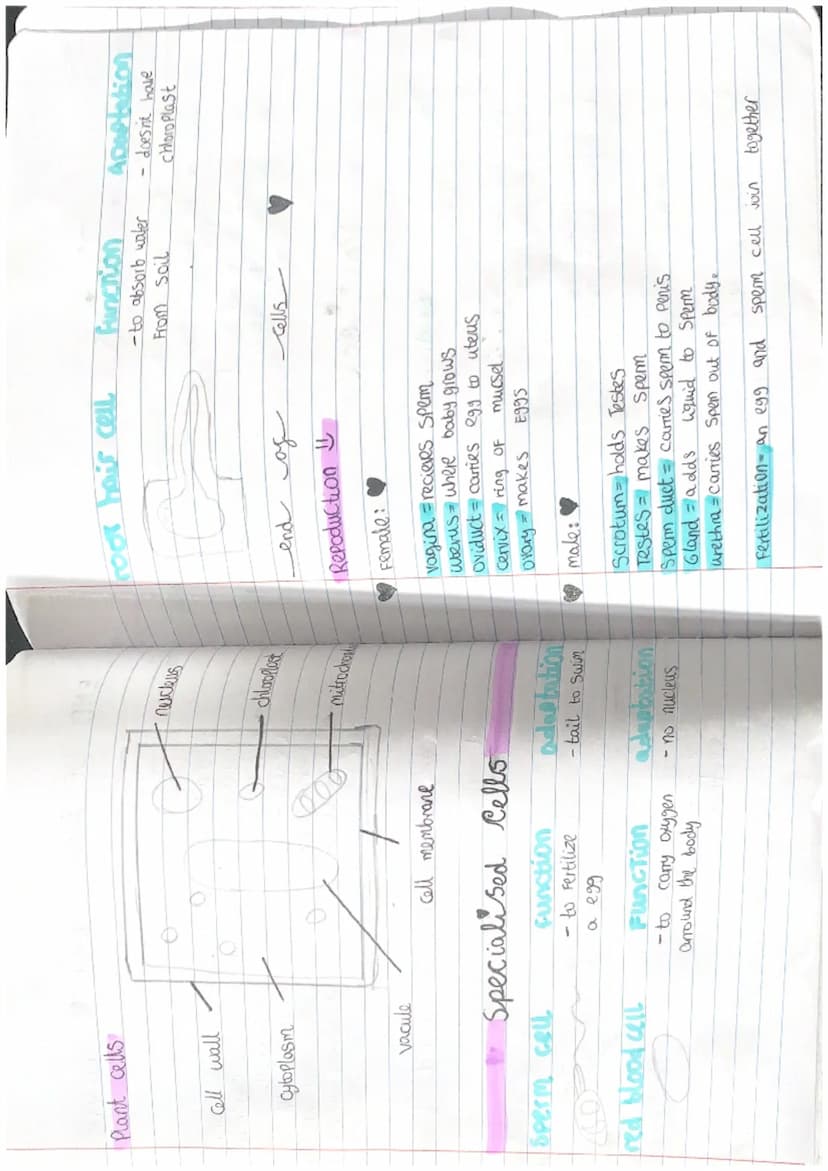 Plant cells
nucleus
chloroplast
mitrochondr
cell wall
cytoplasm
vacule
cell membrane
Specialised cells
sperm cell function adaptation
- to fertilize - tail to swim
a egg
red blood cell function adaptation
- to carry oxygen - no nucleus
arround the body
root hair cell function adaptation
- to absorb water - doesnt have
from soil chloroplast
end of cells
Reproduction
Female:
vagina = recieves sperm
uterus = where baby grows
oviduct = carries egg to uterus
cervix = ring of mucsel
ovary = makes eggs
male:
Scrotum = holds Testes
Testes = makes sperm
sperm duct = carries sperm to penis
Gland = adds liquid to sperm
urethra = carries spem out of body.
Fertilization = an egg and sperm cell join together